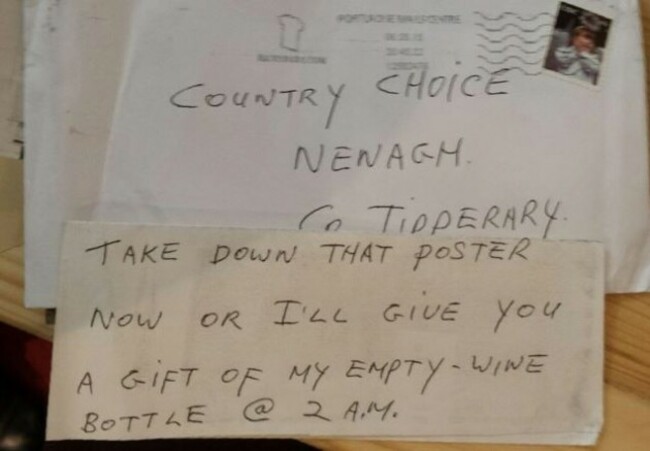 COUNTRY CHOICE
NENAGH.
Co TIPPERARY.
TAKE DOWN THAT POSTER
NOW OR I'LL GIVE YOU
A GIFT OF MY EMPTY-WINE
BOTTLE @ 2 A.M.